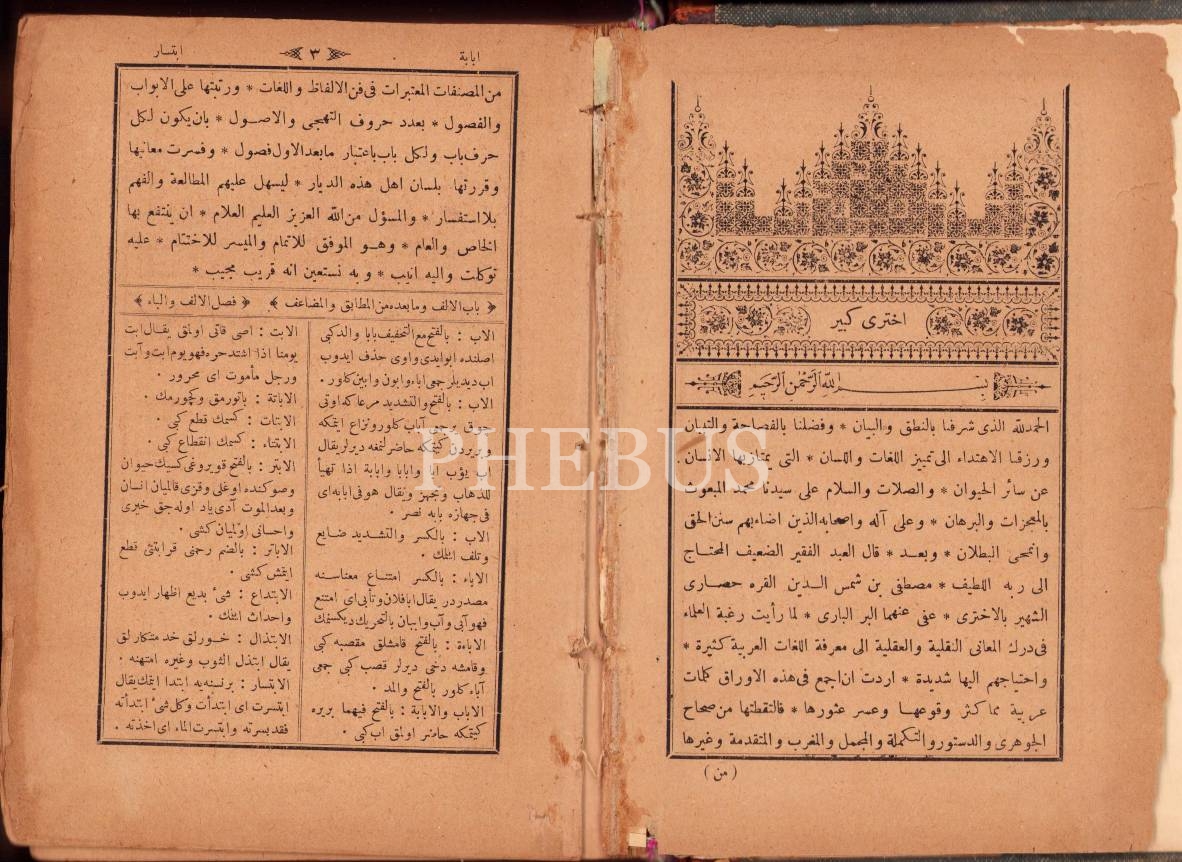 اخترى كبير
بسم الله الرحمن الرحيم
الحمدلله الذى شرفنا بالنطق والبيان * وفضلنا بالفصاحة والتبيان
ورزقنا الاهتداء الى تمييز اللغات واللسان * التى يمتاز بها الانسان
عن سائر الحيوان * والصلات والسلام على سيدنا محمد المبعوث
بالمعجزات والبرهان * وعلى آله واصحابه الذين اضاء بهم سنن الحق
وانمحى البطلان * وبعد * قال العبد الفقير الضعيف المحتاج
الى ربه اللطيف * مصطفى بن شمس الدين القره حصارى
الشهير بالاخترى * عفى عنهما البر البارى * لما رأيت رغبة العلماء
فى درك المعانى النقلية والعقلية الى معرفة اللغات العربية كثيرة *
واحتياجهم اليها شديدة * اردت ان اجمع فى هذه الاوراق كلمات
عربية مما كثر وقوعها وعسر عثورها * فالتقطتها من صحاح
الجوهرى والدستور والتكملة والمجمل والمغرب والمتقدمة وغيرها
( من )
ابابة
٣
ابتسار
من المصنفات المعتبرات فى فن الالفاظ واللغات * ورتبتها على الابواب
والفصول * بعدد حروف التهجى والاصول * بان يكون لكل
حرف باب ولكل باب باعتبار مابعد الاول فصول * وفسرت معانيها
وقررتها بلسان اهل هذه الديار * ليسهل عليهم المطالعة والفهم
بلا استفسار * والمسؤل من الله العزيز العليم العلام * ان ينتفع بها
الخاص والعام * وهو الموفق للاتمام والميسر للاختتام * عليه
توكلت واليه انيب * وبه نستعين انه قريب مجيب *
﴿ باب الالف ومابعده من المطابق والمضاعف ﴾ ﴿ فصل الالف والباء ﴾
الاب : بالفتح مع التخفيف بابا والدكبى
اصلنده ابو ايدى واوى حذف ايدوب
اب ديديلر جمعى اباء وابون وابين كلور .
الاب : بالفتح والتشديد مرعا كه اوتى
چوق يرجمى آباب كلور ونزاع ايتمكه
و بريردن كيتمكه حاضر لنمغه ديرلر يقال
اب يؤب ابا وابابا وابابة اذا تهيأ
للذهاب وتجهز ويقال هو فى ابابه اى
فى جهازه بابه نصر .
الاب : بالكسر والتشديد ضايع
وتلف ايتمك .
الاباء : بالكسر امتناع معناسنه
مصدر در يقال ابا فلان وتأبى اى امتنع
فهو آبى وآب وابيان بالتحريك ديكسنمك
الاباءة : بالفتح قامشلق مقصبه كبى
وقامشه دخى ديرلر قصب كبى جمعى
آباء كلور بالفتح والمد .
الاباب والابابة : بالفتح فيهما بريره
كيتمكه حاضر اولمق اب كبى .
الابت : اصى قاتى اولمق يقال ابت
يومنا اذا اشتد حره فهو يوم ابت وآبت
ورجل مأموت اى محرور .
الاباتة : ياتورمق وكچورمك .
الابتات : كسمك قطع كبى .
الابتتاء : كسمك انقطاع كبى .
الابتر : بالفتح قويروغى كسيك حيوان
وصوكنده اوغلى وقزى قالميان انسان
وبعد الموت آدى ياد اوله جق خيرى
واحسانى اولميان كشى .
الاباتر : بالضم رحمنى قرابتنى قطع
ايتمش كشى .
الابتداع : شئ بديع اظهار ايدوب
واحداث ايتمك .
الابتذال : خورلق خدمتكارلق
يقال ابتذل الثوب وغيره امتهنه .
الابتسار : برنسنه يه ابتدا ايتمك يقال
ابتسرت اى ابتدأت وكل شئ ابتدأته
فقد بسرته وابتسرت الماء اى اخذته .
PHEBUS